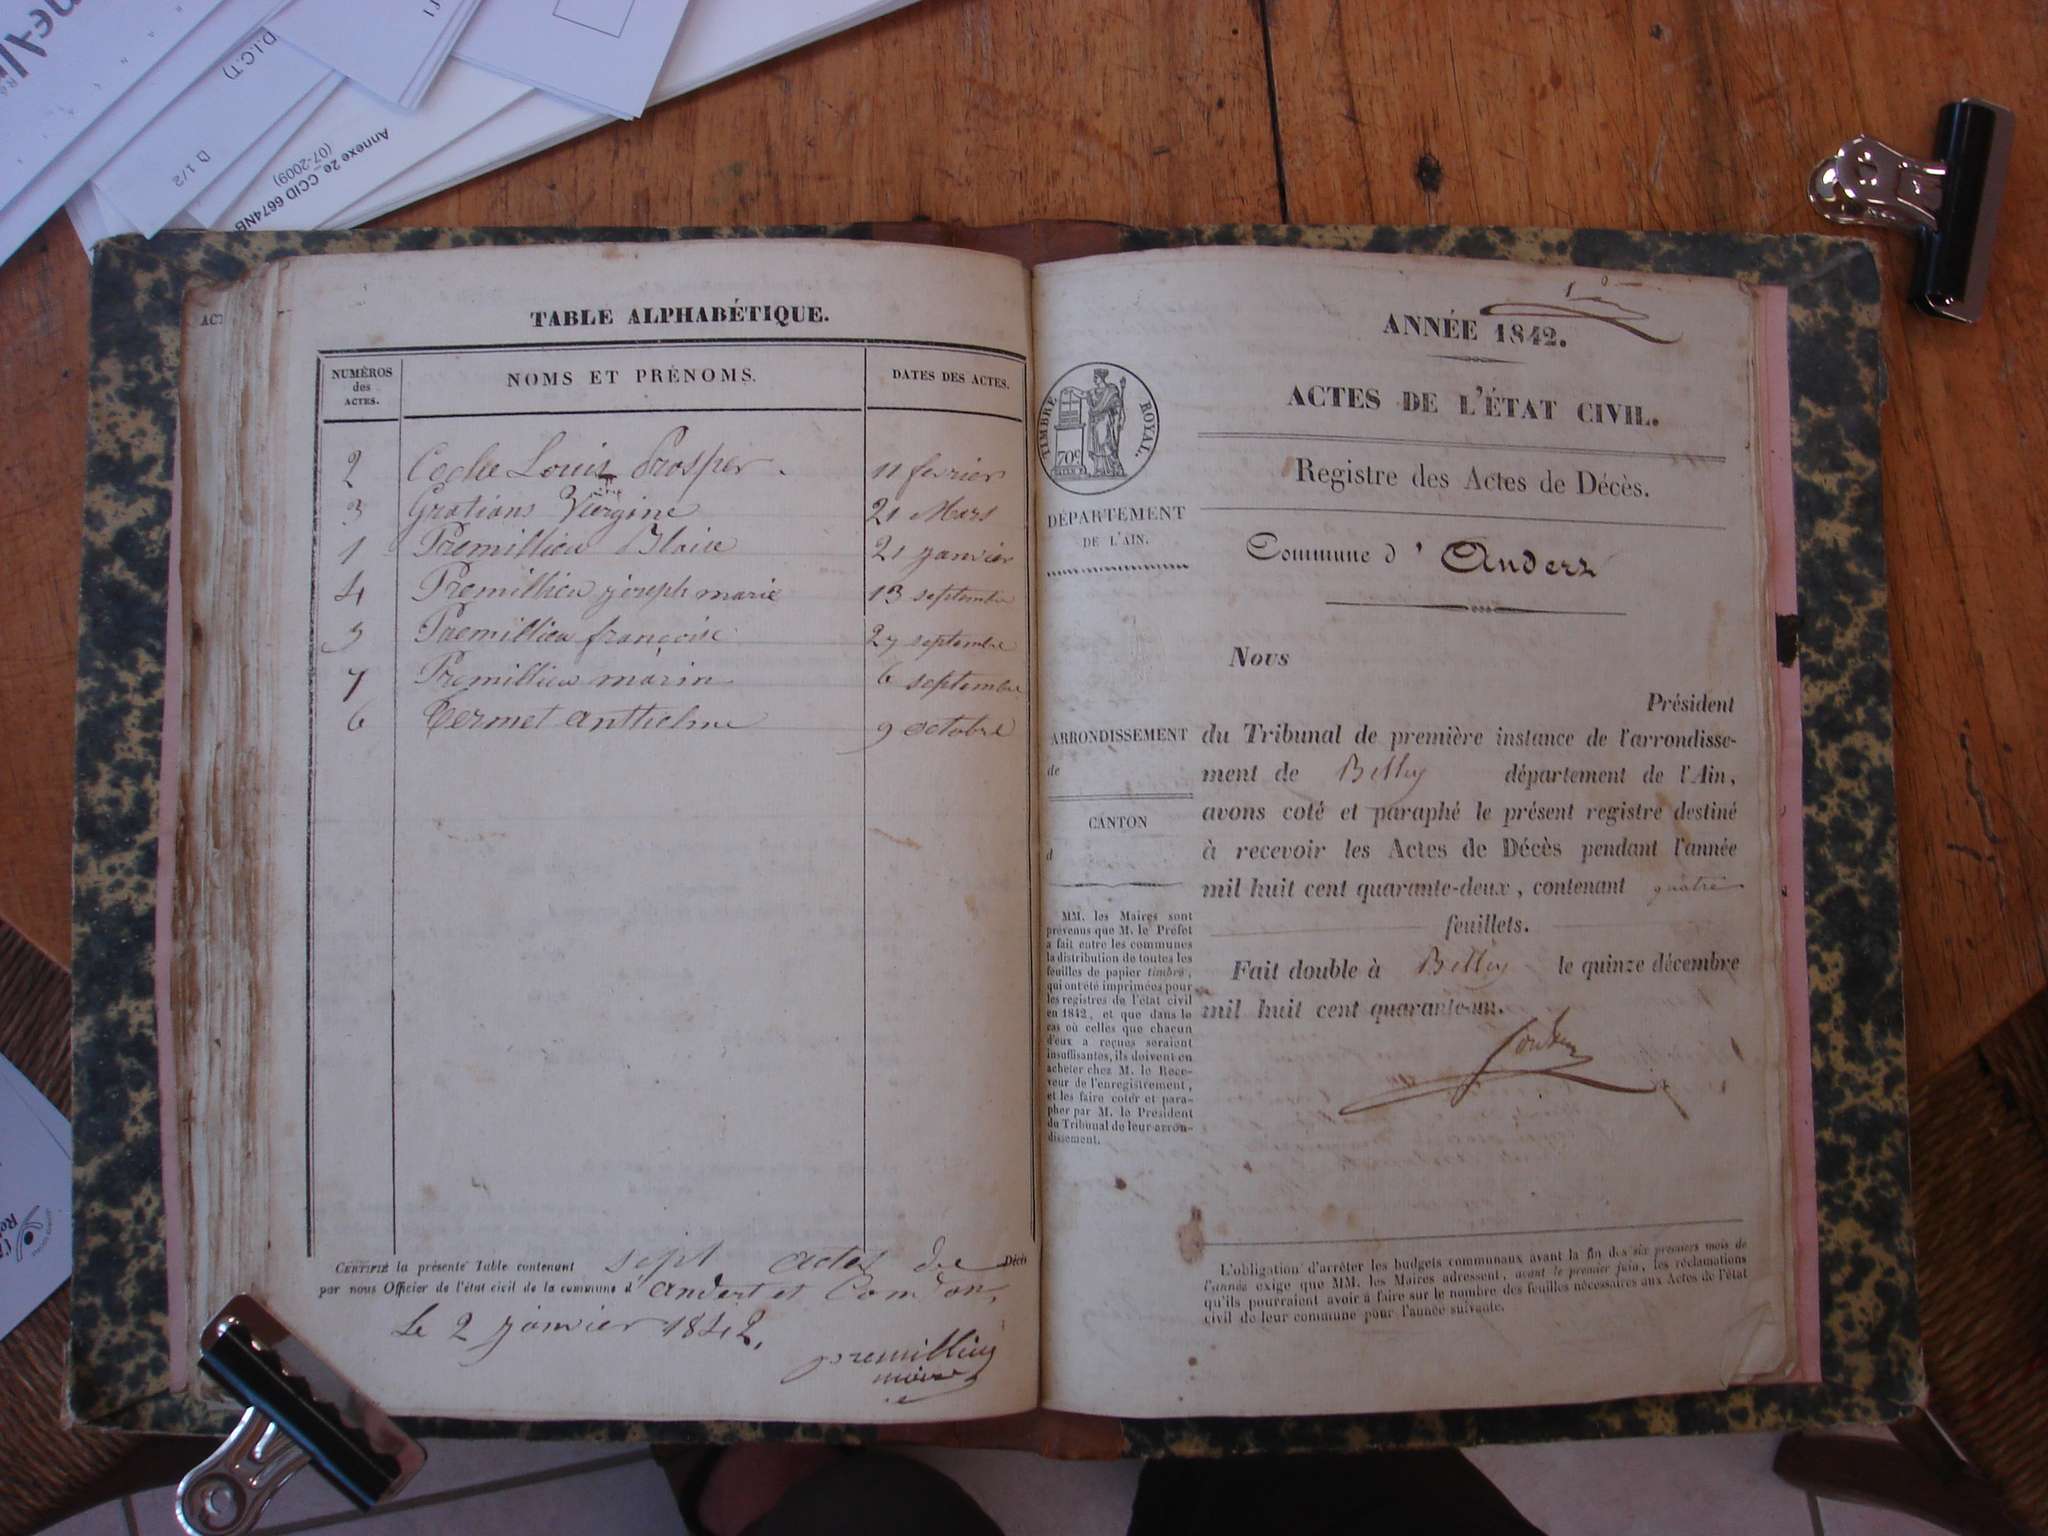 D.I.C.T)
D 1/2
Annexe 2e CCID 6674NB
(07-2009)
TABLE ALPHABÉTIQUE.
NUMÉROS des ACTES. NOMS ET PRÉNOMS. DATES DES ACTES.
2 Coche Louis Prosper. 11 fevrier
3 Gratians Vergine 21 Mars
1 Premillieu Blaise 21 janvier
4 Premillieu joseph marie 13 septembre
5 Premillieu françoise 27 septembre
7 Premillieu marin 6 septembre
6 Termet anthelme 9 octobre
CERTIFIÉ la présente Table contenant sept actes de Décès
par nous Officier de l'état civil de la commune d' andert et Condon,
Le 2 janvier 1842.
premillieu
maire
ANNÉE 1842.
ACTES DE L'ÉTAT CIVIL.
Registre des Actes de Décès.
Commune d' Anderz
TIMBRE ROYAL.
70c
DÉPARTEMENT
DE L'AIN.
ARRONDISSEMENT
de
CANTON
d
MM. les Maires sont
prévenus que M. le Préfet
a fait entre les communes
la distribution de toutes les
feuilles de papier timbré,
qui ont été imprimées pour
les registres de l'état civil
en 1842, et que dans le
cas où celles que chacun
d'eux a reçues seraient
insuffisantes, ils doivent en
acheter chez M. le Rece-
veur de l'enregistrement,
et les faire coter et para-
pher par M. le Président
du Tribunal de leur arron-
dissement.
Nous
Président
du Tribunal de première instance de l'arrondisse-
ment de Belley département de l'Ain,
avons coté et paraphé le présent registre destiné
à recevoir les Actes de Décès pendant l'année
mil huit cent quarante-deux, contenant quatre
feuillets.
Fait double à Belley le quinze décembre
mil huit cent quarante-un.
L'obligation d'arrêter les budgets communaux avant la fin des six premiers mois de
l'année exige que MM. les Maires adressent, avant le premier juin, les réclamations
qu'ils pourraient avoir à faire sur le nombre des feuilles nécessaires aux Actes de l'état
civil de leur commune pour l'année suivante.